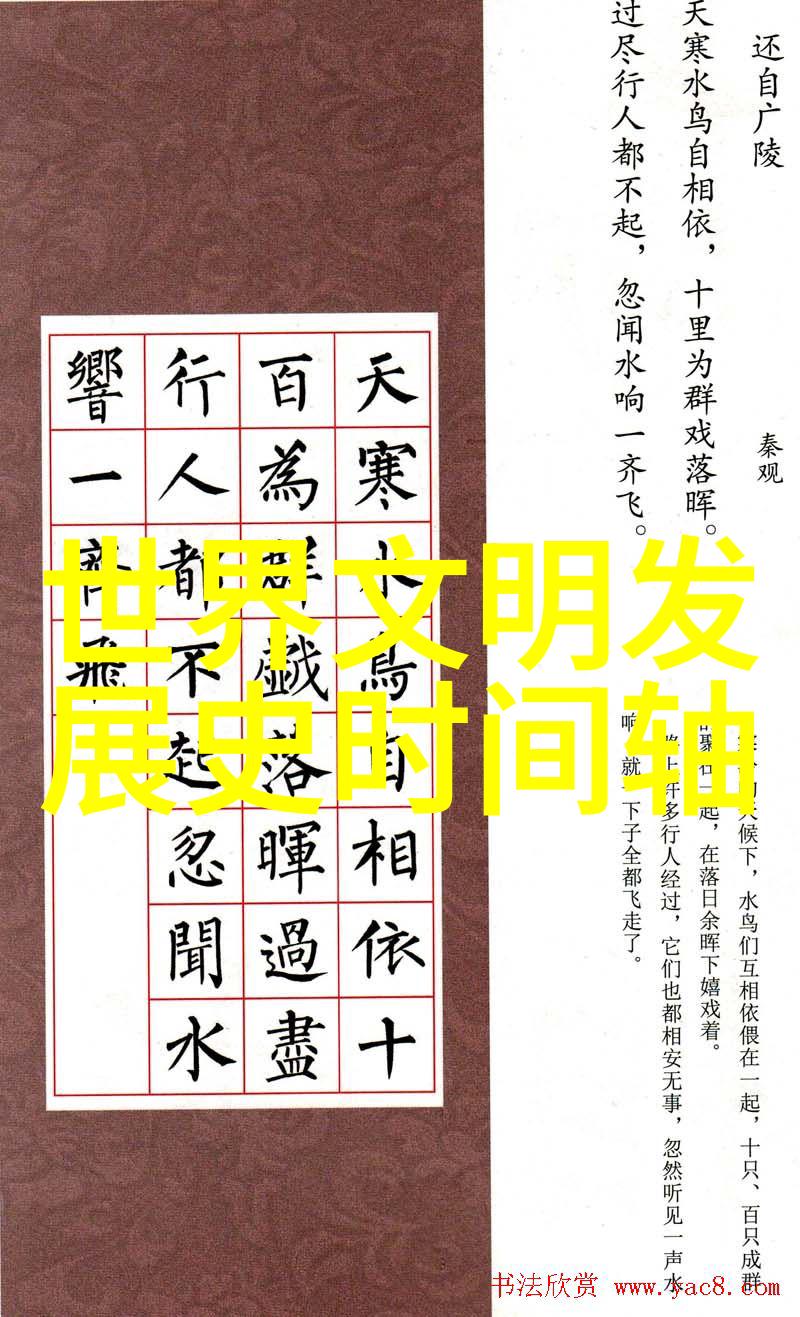 还自广陵
秦观
天寒水鸟自相依，十里为群戏落晖。
过尽行人都不起，忽闻水响一齐飞。
天寒水鳥自相依十
百為群戲落暉過盡
行人都不起忽聞水
響一齊飛
世界文明发
展史时间轴
候下，水鸟们互相依偎在一起，十只、百只成群
聚在一起，在落日余晖下嬉戏着。
多行人经过，它们也都相安无事，忽然听见一声水
响，就一下子全都飞走了。
书法欣赏 www.yac8.com